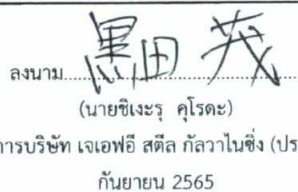 ลงนาม....黒田 茂....
(นายชิเงะรุ คุโรดะ)
การบริษัท เจเอฟอี สตีล กัลวาไนซิ่ง (ประ
กันยายน 2565